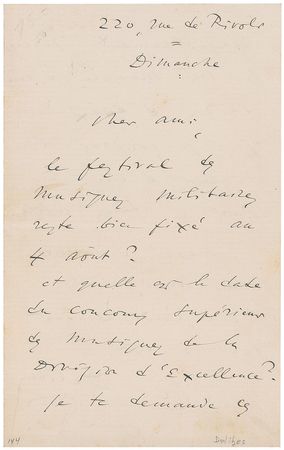 220, rue de Rivoli
Dimanche
cher ami,
le festival des
musiques militaires
reste bien fixé au
4 août ?
et quelle est la date
du concours supérieur
des musiques de la
Division d'Excellence ?
je te demande ces
144